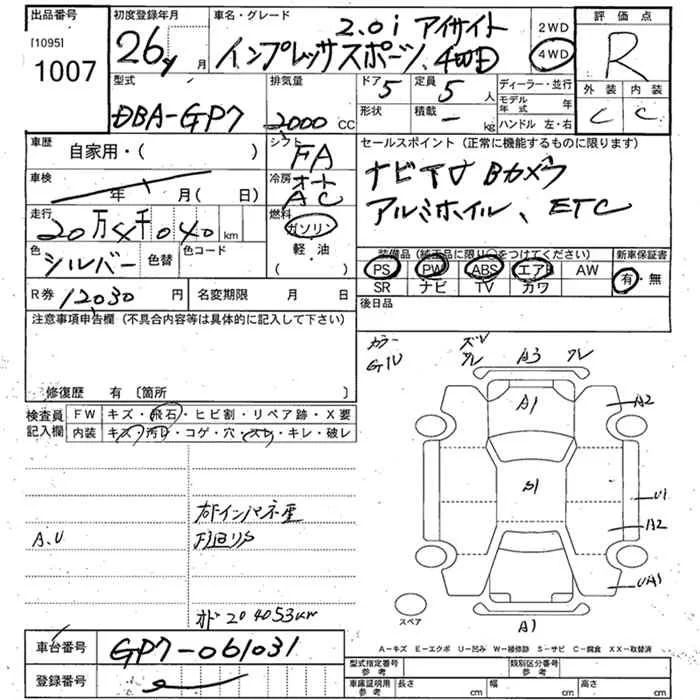 出品番号
[1095]
1007
初度登録年月
26y 月
車名・グレード
2.0i アイサイト
インプレッサスポーツ、4WD
2WD
4WD
評価点
R
外装 内装
C C
型式
DBA-GP7
排気量
2000 CC
ドア
5
定員
5 人
形状
積載
- kg
ディーラー・並行
モデル年式 年
ハンドル 左・右
車歴
自家用・( )
シフト
FA
セールスポイント(正常に機能するものに限ります)
ナビTV Bカメラ
アルミホイル、ETC
車検
年 月(日)
冷房
オート
AC
走行
20万4千040 km
燃料
ガソリン
軽・油
( )
色
シルバー
色替
色コード
装備品(純正品に限り○をつけてください)
新車保証書
PS PW ABS エアB AW
SR ナビ TV カワ
有・無
R券 12030 円
名変期限 月 日
後日品
注意事項申告欄(不具合内容等は具体的に記入して下さい)
修復歴 有〔箇所 〕
検査員
記入欄
FW キズ・飛石・ヒビ割・リペア跡・X要
内装 キズ・汚れ・コゲ・穴・スレ・キレ・破レ
カラー
G1U
A3
A1
A2
B1
U1
A2
UA1
A1
スペア
A.U
オド 204053km
車台番号
GP7-061031
登録番号
A-キズ E-エクボ U-凹み W-補修跡 S-サビ C-腐食 XX-取替済
型式指定番号
参考
類別区分番号
参考
車庫証明用
参考
長さ cm
幅 cm
高さ cm